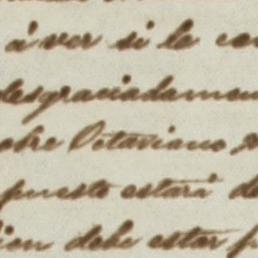 á ver si le
desgraciadamen
obre Octaviano
puesto estará de
ion debe estar p